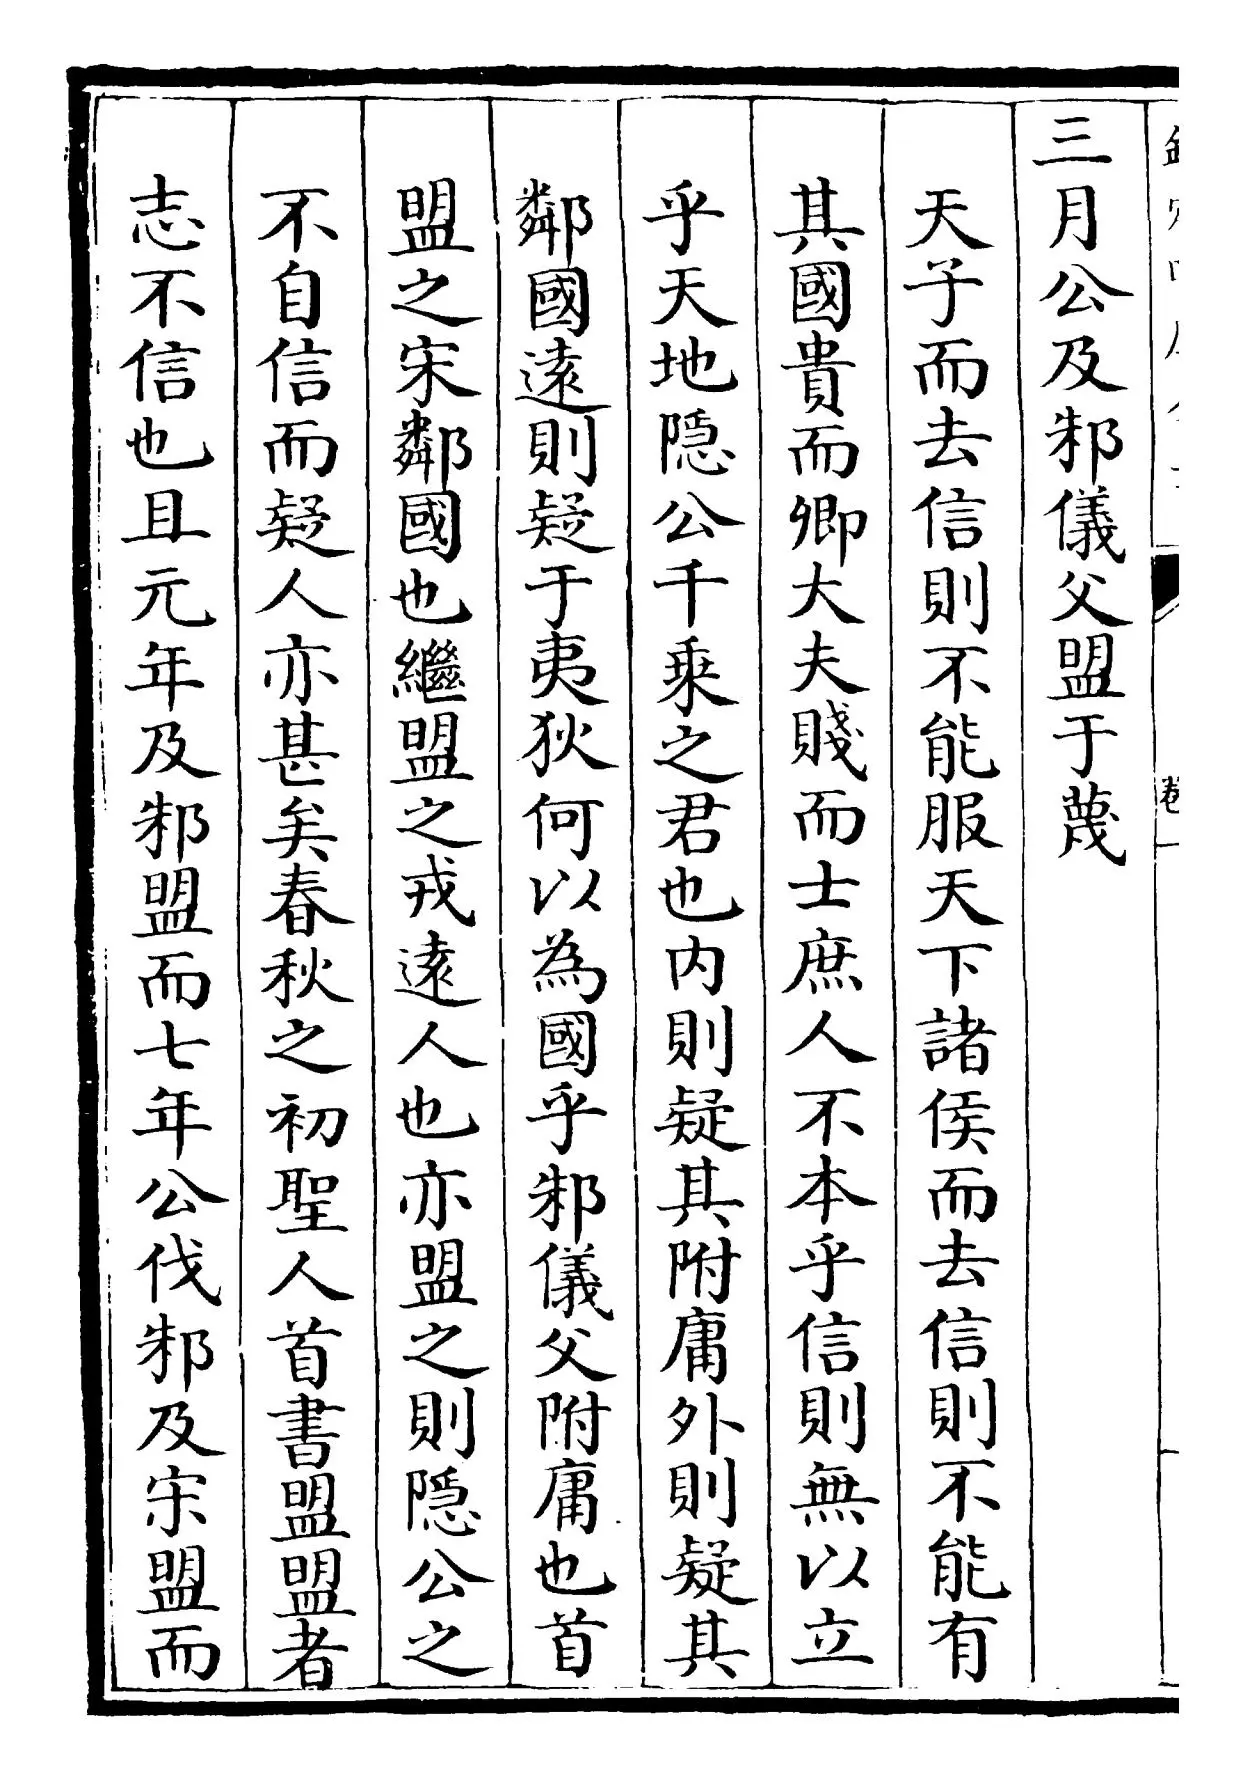 三月公及邾儀父盟于蔑
天子而去信則不能服天下諸侯而去信則不能有
其國貴而卿大夫賤而士庶人不本乎信則無以立
乎天地隠公千乗之君也内則疑其附庸外則疑其
鄰國逺則疑于夷狄何以為國乎邾儀父附庸也首
盟之宋鄰國也繼盟之戎逺人也亦盟之則隠公之
不自信而疑人亦甚矣春秋之初聖人首書盟盟者
志不信也且元年及邾盟而七年公伐邾及宋盟而